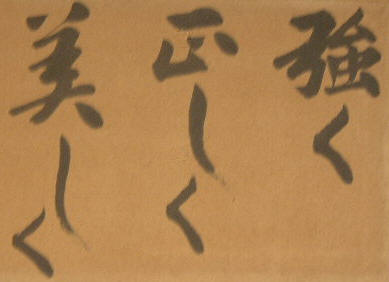 強く
正しく
美しく